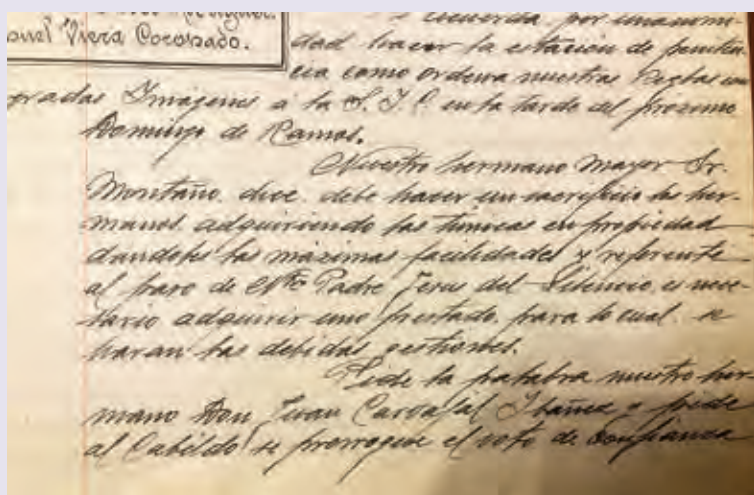 nuel Viera Coronado.
acuerda por unanimi-
dad hacer la estación de peniten-
cia como ordena nuestras Reglas con
gradas Imágenes a la S. I. C. en la tarde del proximo
Domingo de Ramos.
Nuestro hermano Mayor Sr.
Montaño, dice, debe hacer un sacrificio los her-
manos, adquiriendo las túnicas en propiedad
dandoles las máximas facilidades y referente
al paso de Ntro Padre Jesus del Silencio, es nece-
sario adquirir uno prestado, para lo cual, se
haran las debidas gestiones.
Pide la palabra nuestro her-
mano Don Juan Carvajal Ibáñez y pide
al Cabildo se prorrogue el voto de confianza